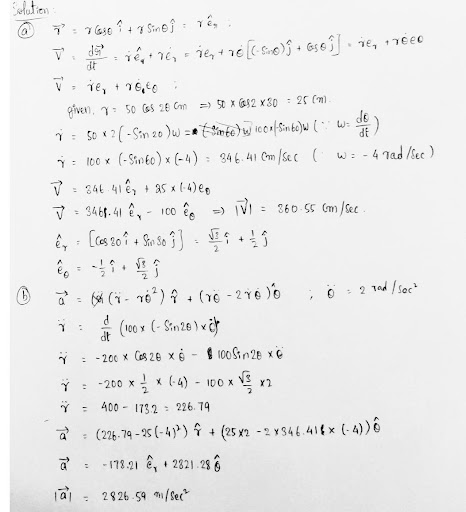 Solution:
(a) r⃗ = r Cosθ î + r Sinθ ĵ = r ê_r ;
V⃗ = dr⃗/dt = ṙê_r + rė_r = ṙê_r + rθ̇[(-Sinθ)ĵ + Cosθ ĵ] = ṙe_r + rθ̇eθ
V⃗ = ṙe_r + rθ̇_e e_θ ;
given, r = 50 Cos 2θ Cm ⇒ 50 x Cos2x30 = 25 (m).
ṙ = 50 x 2 (-Sin 2θ) ω = 100x(-Sin60)ω (∵ ω = dθ/dt)
ṙ = 100 x (-Sin60) x (-4) = 346.41 Cm/Sec ( ω = -4 rad/sec )
V⃗ = 346.41 ê_r + 25 x (-4) e_θ
V⃗ = 346.41 ê_r - 100 ê_θ ⇒ |V⃗| = 360.55 Cm/Sec.
ê_r = [Cos 30 î + Sin 30 ĵ] = √3/2 î + 1/2 ĵ
ê_θ = -1/2 î + √3/2 ĵ
(b) a⃗ = (r̈ - rθ̇²) r̂ + (rθ̈ - 2ṙθ̇) θ̂ ; θ̈ = 2 rad/Sec²
r̈ = d/dt (100 x (-Sin2θ) x θ̇)
r̈ = -200 x Cos2θ x θ̇ - 100 Sin2θ x θ̈
r̈ = -200 x 1/2 x (-4) - 100 x √3/2 x2
r̈ = 400 - 173.2 = 226.79
a⃗ = (226.79 - 25(-4)²) r̂ + (25x2 - 2x346.41 x (-4)) θ̂
a⃗ = -173.21 ê_r + 2821.28 θ̂
|a⃗| = 2826.59 m/Sec²